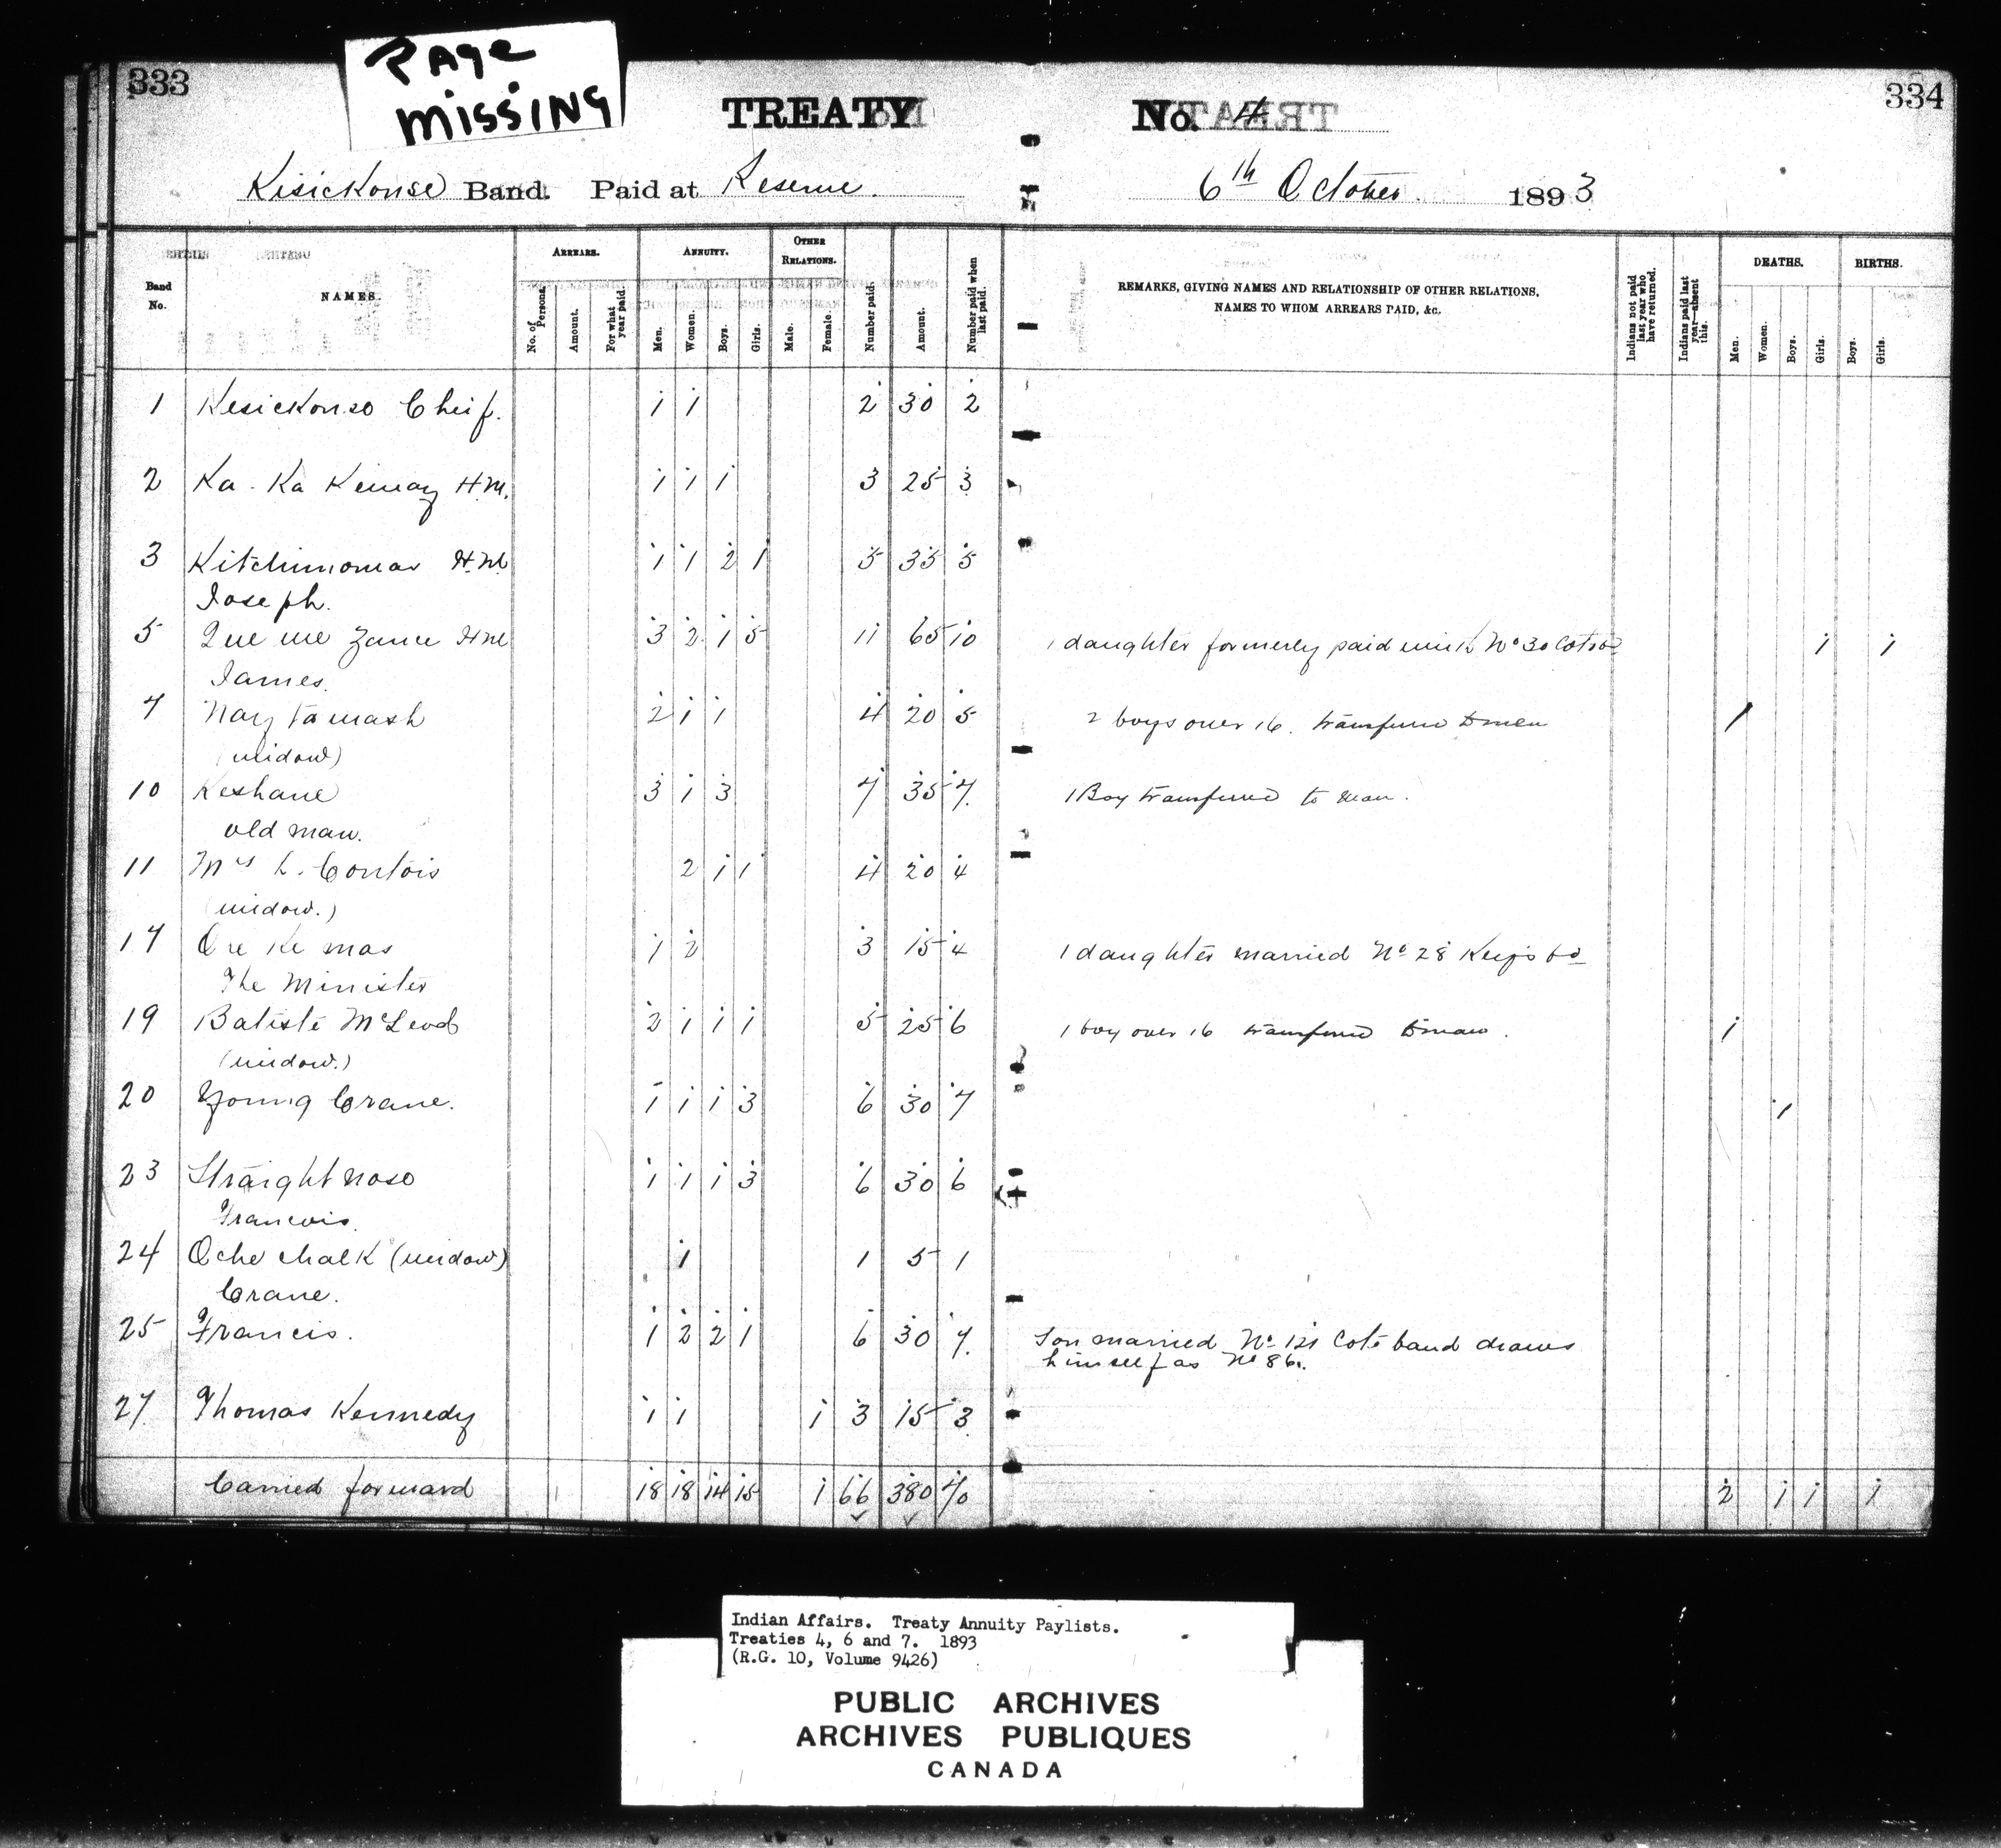 333
PAGE
MISSING
TREATY No. 4
334
Kisickonse Band. Paid at Reserve. 6th October 1893
Band No.
NAMES.
ARREARS.
No. of Persons.
Amount.
For what year paid.
ANNUITY.
Men.
Women.
Boys.
Girls.
OTHER RELATIONS.
Male.
Female.
Number paid.
Amount.
Number paid when last paid.
REMARKS, GIVING NAMES AND RELATIONSHIP OF OTHER RELATIONS,
NAMES TO WHOM ARREARS PAID, &c.
Indians not paid last year who have returned.
Indians paid last year—absent this.
DEATHS.
Men.
Women.
Boys.
Girls.
BIRTHS.
Boys.
Girls.
1 Kesickonse Cheif. 1 1 2 30 2
2 Ka-Ka Keway H.M. 1 1 1 3 25 3
3 Kitchimomas H.M 1 1 2 1 5 35 5
Joseph.
5 Que we zance H M 3 2 1 5 11 65 10 1 daughter formerly paid with No 30 Cotes bd 1 1
James.
7 Nay ta wash 2 1 1 4 20 5 2 boys over 16. transferred to men 1
(widow)
10 Keshane 3 1 3 7 35 7. 1 Boy transferred to man.
old man.
11 Mrs L. Contois 2 1 1 4 20 4
(widow.)
17 Ore Ke mas 1 2 3 15 4 1 daughter married No 28 Key's bd
The Minister
19 Batiste McLeod 2 1 1 1 5 25 6 1 boy over 16 transferred to man. 1
(widow.)
20 Young Crane. 1 1 1 3 6 30 7 1
23 Straight nose 1 1 1 3 6 30 6
Francois.
24 Oche chalk (widow) 1 1 5 1
Crane.
25 Francis. 1 2 2 1 6 30 7. Son married No 121 Cote band draws
himself as No 86.
27 Thomas Kennedy 1 1 1 3 15 3
Carried forward 18 18 14 15 1 66 380 70 2 1 1 1
Indian Affairs. Treaty Annuity Paylists.
Treaties 4, 6 and 7. 1893
(R.G. 10, Volume 9426)
PUBLIC ARCHIVES
ARCHIVES PUBLIQUES
CANADA